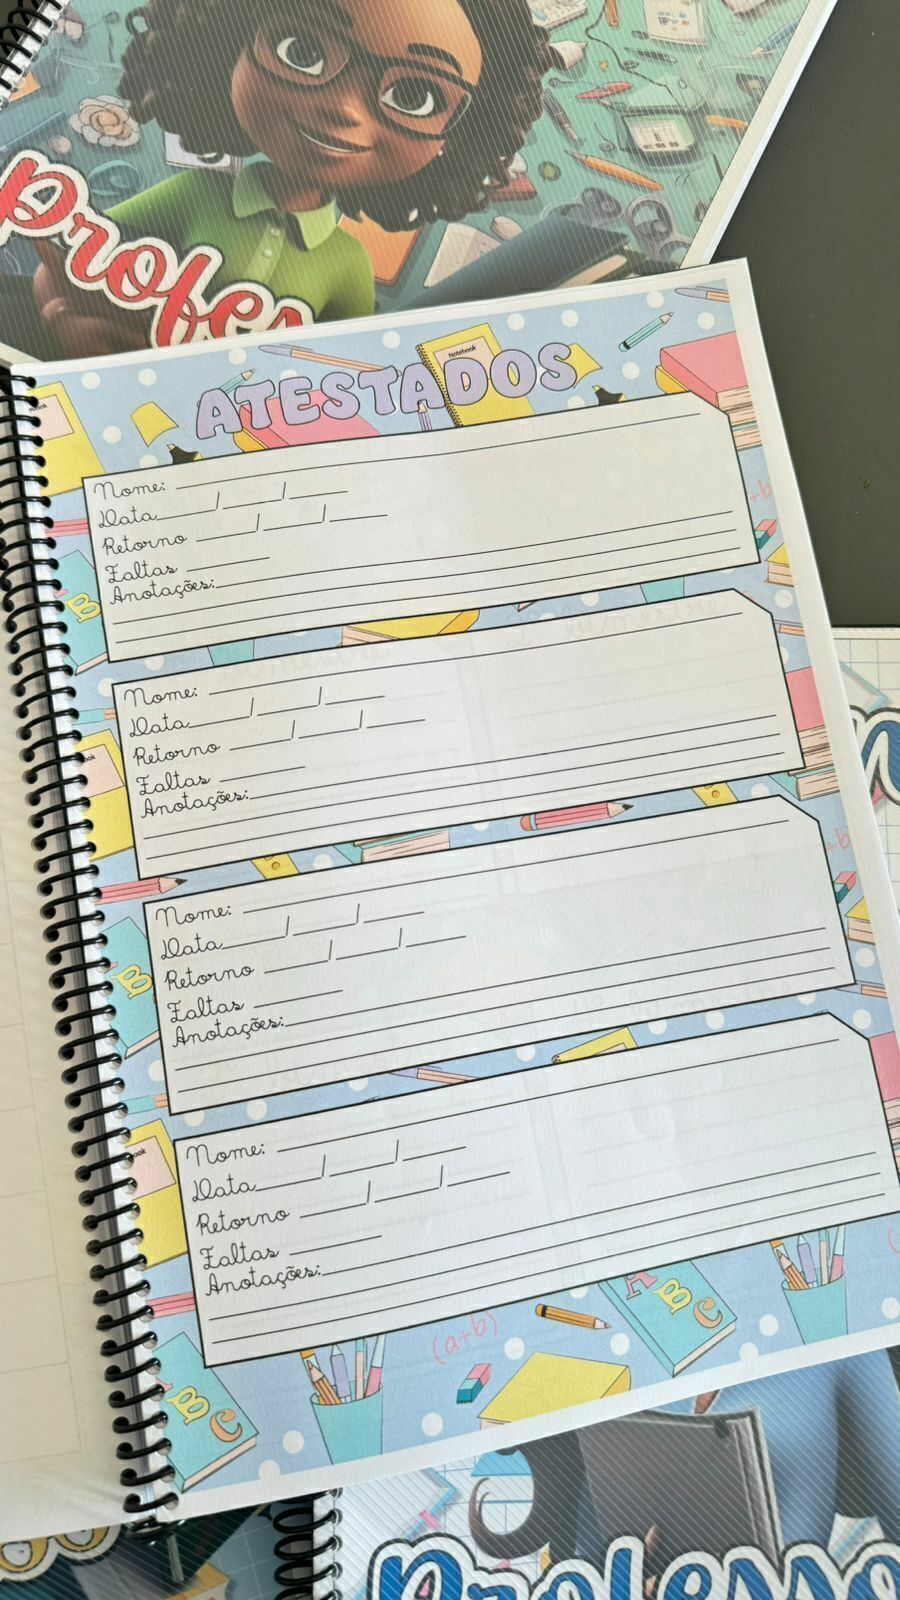 Profes
Notebook
ATESTADOS
Nome:
Data / /
Retorno / /
Faltas
Anotações:
Nome:
Data / /
Retorno / /
Faltas
Anotações:
Nome:
Data / /
Retorno / /
Faltas
Anotações:
Nome:
Data / /
Retorno / /
Faltas
Anotações:
(a+b)
ABC
ABC
Professo